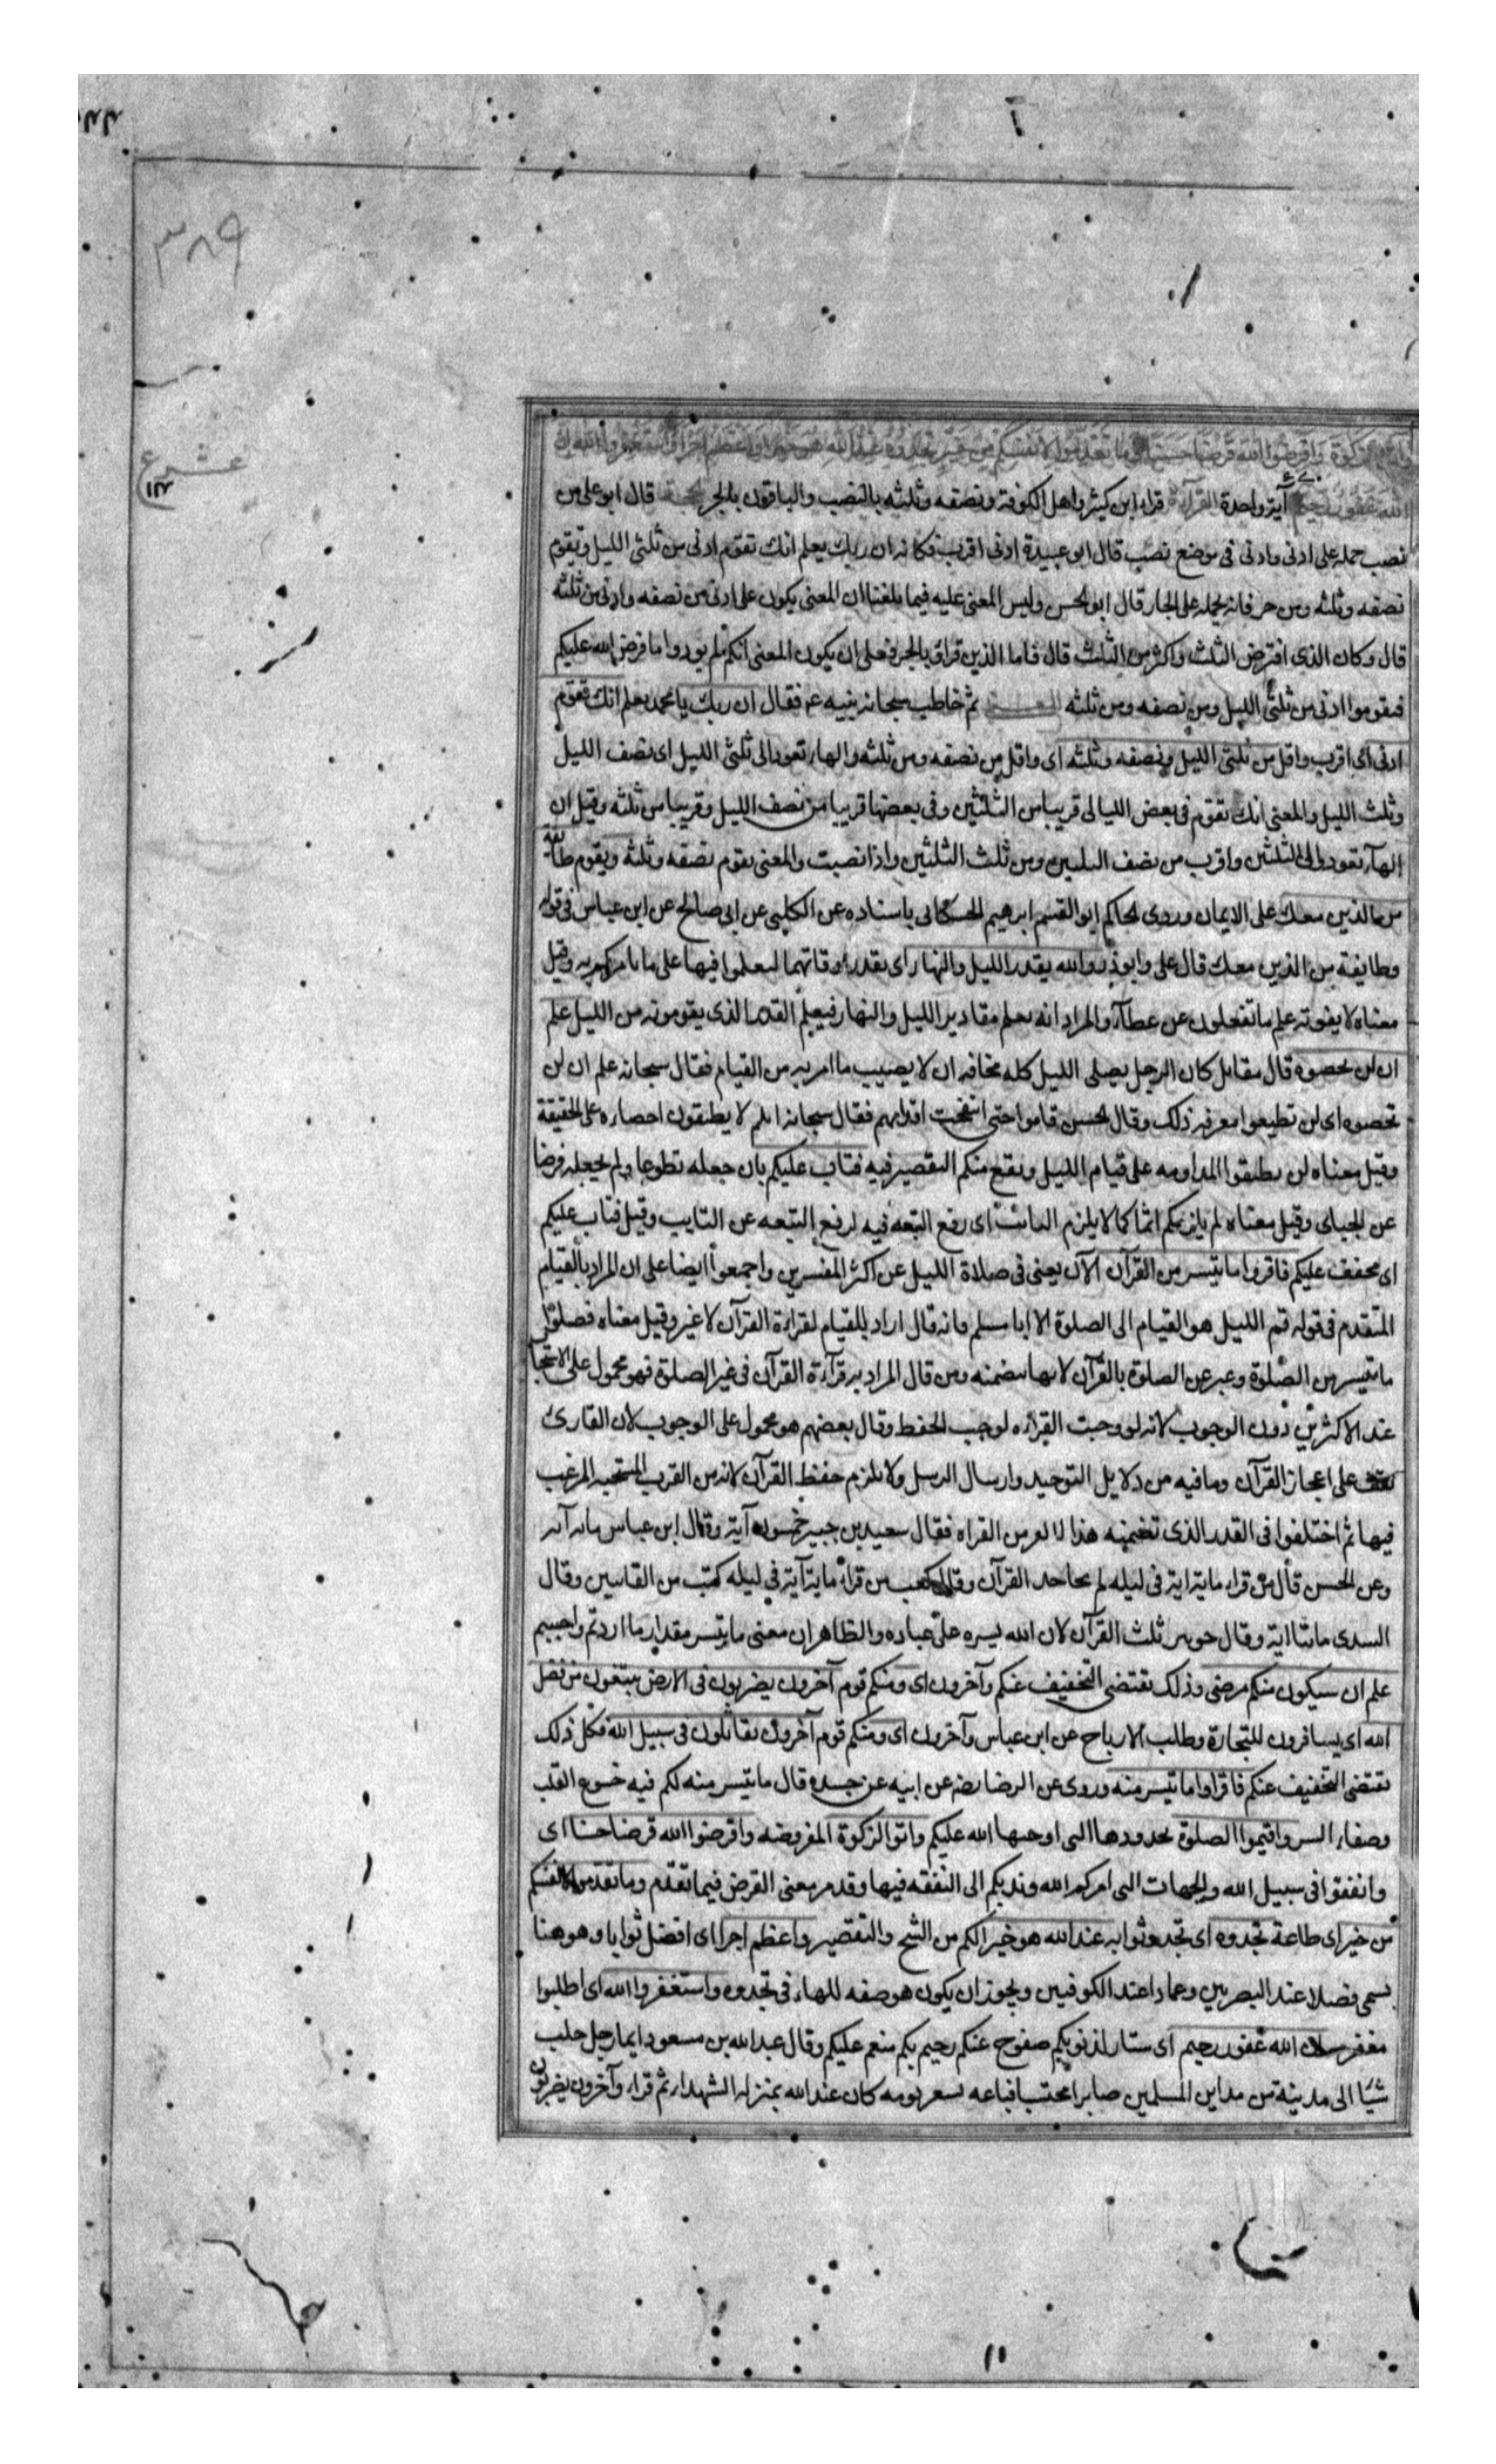 الزكوة وَاَقْرِضُوا اللهَ قَرْضًا حَسَنًا وَمَا تُقَدِّمُوا لِاَنْفُسِكُمْ مِنْ خَيْرٍ تَجِدُوهُ عِنْدَ اللهِ هُوَ خَيْرًا وَاَعْظَمَ اَجْرًا وَاسْتَغْفِرُوا اللهَ اِنَّ
اللهَ غَفُورٌ رَحِيمٌ آية واحدة القرآءة قراء ابن كثير واهل الكوفة ونصفه وثلثه بالنصب والباقون بالجر الحجة قال ابو علي من
نصب حمله على ادنى وادنى في موضع نصب قال ابو عبيدة ادنى اقرب فكانه ان ربك يعلم انك تقوم ادنى من ثلثي الليل وتقوم
نصفه وثلثه ومن جر فانه يحمله على الجار قال ابو الحسن وليس المعنى عليه فيما بلغنا ان المعنى يكون على ادنى من نصفه وادنى من ثلثه
قال وكان الذي افترض الثلث واكثر من الثلث قال فاما الذين قراؤ بالجر فعلى ان يكون المعنى انكم لم يودوا ما فرض الله عليكم
فيقوموا ادنى من ثلثي الليل ومن نصفه ومن ثلثه المعنى ثم خاطب سبحانه نبيه عم فقال ان ربك يا محمد يعلم انك تقوم
ادنى اى اقرب واقل من ثلثي الليل ونصفه وثلثه اى واقل من نصفه ومن ثلثه والهاء تعود الى ثلثي الليل اى نصف الليل
وثلث الليل والمعنى انك تقوم في بعض الليالي قريبا من الثلثين وفي بعضها قريبا من نصف الليل وقريبا من ثلثه وقيل ان
الهآء تعود الى الثلثين واقرب من نصف الثلثين ومن ثلث الثلثين واذا نصبت والمعنى يقوم نصفه وثلثه ويقوم طائفة
من الذين معك على الايمان وروى الحاكم ابو القسم ابرهيم الحسكاني باسناده عن الكلبي عن ابي صالح عن ابن عباس في قوله
وطايفة من الذين معك قال علي وابوذر والله يقدر الليل والنهار اى يقدر اوقاتهما لتعملوا فيها على ما يامركم به وقيل
معناه لا يفوته علم ما تفعلون عن عطآء والمراد انه يعلم مقادير الليل والنهار فيعلم القدر الذى يقومونه من الليل علم
ان لن تحصوه قال مقاتل كان الرجل يصلى الليل كله مخافه ان لا يصيب ما امر به من القيام فقال سبحانه علم ان لن
تحصوه اى لن تطيعوا معرفه ذلك وقال الحسن قاموا حتى انتفخت اقدامهم فقال سبحانه انكم لا يطيقون احصاره على الحقيقة
وقيل معناه لن يطيقوا المداومه على قيام الليل ويقع منكم التقصير فيه فتاب عليكم بان جعله تطوعا ولم يجعله فرضا
عن الجباى وقيل معناه لم يلزمكم اثما كما لا يلزم التائب اى رفع التبعه فيه لرفع التبعه عن التايب وقيل فتاب عليكم
اى فخفف عليكم فاقرءوا ما تيسر من القرآن الآن يعنى في صلاة الليل عن اكثر المفسرين واجمعوا ايضا على ان المراد بالقيام
المتقدم في قوله قم الليل هو القيام الى الصلوة الا ابا مسلم فانه قال اراد للقيام لقراءة القرآن لا غير وقيل معناه فصلوا
ما تيسر من الصلوة وعبر عن الصلوة بالقرآن لانها تتضمنه ومن قال المراد به قرآءة القرآن في غير الصلوة فهو محمول على الاستحبا
عند الاكثرين دون الوجوب لانه لو وجبت القراءه لوجب الحفظ وقال بعضهم هو محمول على الوجوب لان القارئ
يقف على اعجاز القرآن وما فيه من دلايل التوحيد وارسال الرسل ولا يلزم حفظ القرآن لانه من القرب المستحبه المرغب
فيها ثم اختلفوا في القدر الذى تضمنه هذا الامر من القراه فقال سعيد بن جبير خمسون آية وقال ابن عباس مايه آيه
وعن الحسن قال من قراء ماية اية في ليله لم يحاجه القرآن وقال كعب من قراء ماية آية في ليله كتب من القانتين وقال
السدى مائتا اية وقال جويبر ثلث القرآن لان الله يسره على عباده والظاهر ان معنى ما تيسر مقدار ما اردتم واحببتم
علم ان سيكون منكم مرضى وذلك يقتضى التخفيف عنكم وآخرون اى ومنكم قوم آخرون يضربون في الارض يبتغون من فضل
الله اى يسافرون للتجارة وطلب الارباح عن ابن عباس وآخرون اى ومنكم قوم آخرون يقاتلون في سبيل الله فكل ذلك
يقتضى التخفيف عنكم فاقراوا ما تيسر منه وروى عن الرضا رضه عن ابيه عن جده قال ما تيسر منه لكم فيه خشوع القلب
وصفاء السر واقيموا الصلوة بحدودها التى اوجبها الله عليكم واتوا الزكوة المفروضه واقرضوا الله قرضا حسنا اى
وانفقوا في سبيل الله والجهات التى امركم الله وندبكم الى النفقه فيها وقد مر معنى القرض فيما تقدم وما تقدموا لانفسكم
من خير اى طاعة تجدوه اى تجدوا ثوابه عند الله هو خيرا لكم من الشح والتقصير واعظم اجرا اى افضل ثوابا وهو هنا
يسمى فصلا عند البصريين وعمادا عند الكوفيين ويجوز ان يكون هو صفه للهاء في تجدوه واستغفروا الله اى اطلبوا
مغفرته ان الله غفور رحيم اى ستار لذنوبكم صفوح عنكم رحيم بكم منعم عليكم وقال عبد الله بن مسعود ايما رجل جلب
شيا الى مدينة من مداين المسلمين صابرا محتسبا فباعه بسعر يومه كان عند الله بمنزله الشهداء ثم قراء وآخرون يضربون
٣٨٩
عشر ع